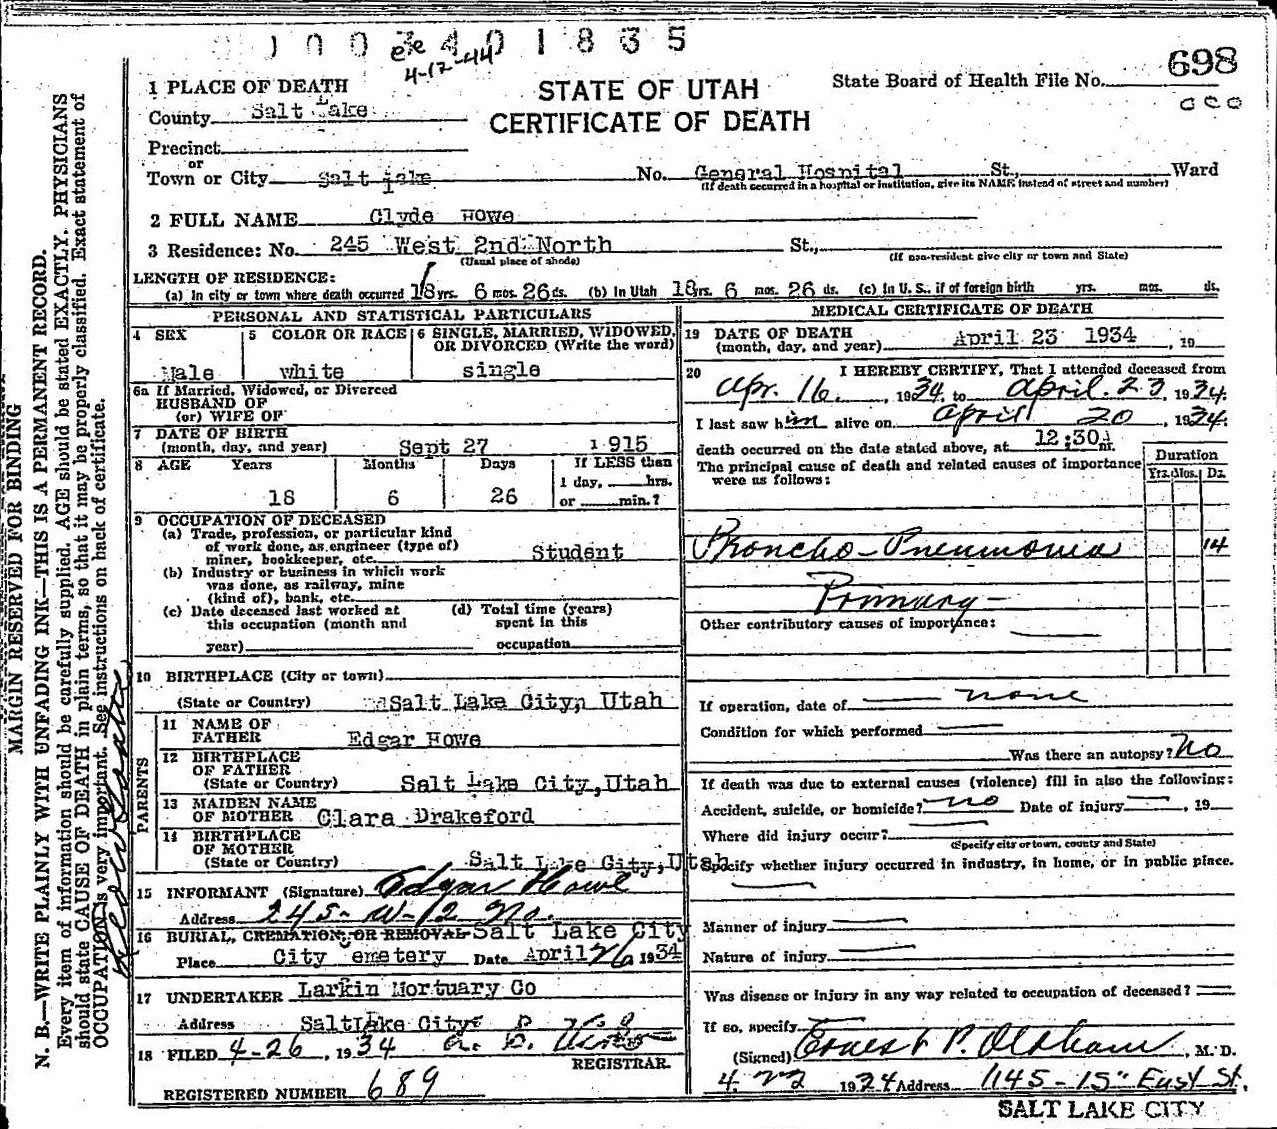 1 0 0 3 4 0 1 8 3 5
4-12-44
698
1 PLACE OF DEATH
STATE OF UTAH
CERTIFICATE OF DEATH
State Board of Health File No.
County Salt Lake
Precinct
or
Town or City Salt Lake No. General Hospital St., Ward
(If death occurred in a hospital or institution, give its NAME instead of street and number)
2 FULL NAME Clyde Howe
3 Residence: No. 245 West 2nd North St.,
(Usual place of abode) (If non-resident give city or town and State)
LENGTH OF RESIDENCE:
(a) In city or town where death occurred 18 yrs. 6 mos. 26 ds. (b) In Utah 18 yrs. 6 mos. 26 ds. (c) In U. S., if of foreign birth yrs. mos. ds.
PERSONAL AND STATISTICAL PARTICULARS
4 SEX
Male
5 COLOR OR RACE
white
6 SINGLE, MARRIED, WIDOWED, OR DIVORCED (Write the word)
single
6a If Married, Widowed, or Divorced
HUSBAND OF
(or) WIFE OF
7 DATE OF BIRTH
(month, day, and year) Sept 27 1915
8 AGE Years Months Days If LESS than
1 day, hrs.
18 6 26 or min.?
9 OCCUPATION OF DECEASED
(a) Trade, profession, or particular kind
of work done, as engineer (type of)
miner, bookkeeper, etc. Student
(b) Industry or business in which work
was done, as railway, mine
(kind of), bank, etc.
(c) Date deceased last worked at
this occupation (month and
year)
(d) Total time (years)
spent in this
occupation
10 BIRTHPLACE (City or town)
(State or Country) Salt Lake City, Utah
PARENTS
11 NAME OF
FATHER Edgar Howe
12 BIRTHPLACE
OF FATHER
(State or Country) Salt Lake City, Utah
13 MAIDEN NAME
OF MOTHER Clara Drakeford
14 BIRTHPLACE
OF MOTHER
(State or Country) Salt Lake City, Utah
15 INFORMANT (Signature) Edgar Howe
Address 245- W-12 No.
16 BURIAL, CREMATION, OR REMOVAL Salt Lake City
Place City emetery Date April 26 1934
17 UNDERTAKER Larkin Mortuary Co
Address Salt Lake City
18 FILED 4-26, 1934
REGISTRAR.
REGISTERED NUMBER 689
MEDICAL CERTIFICATE OF DEATH
19 DATE OF DEATH
(month, day, and year) April 23 1934, 19
20 I HEREBY CERTIFY, That I attended deceased from
Apr. 16, 1934, to April. 23, 1934.
I last saw him alive on April 20, 1934.
death occurred on the date stated above, at 12:30A m.
The principal cause of death and related causes of importance
were as follows:
Duration
Yrs. Mos. Ds.
Broncho-Pneumonia 14
Primary-
Other contributory causes of importance:
If operation, date of none
Condition for which performed
Was there an autopsy? No
If death was due to external causes (violence) fill in also the following:
Accident, suicide, or homicide? no Date of injury , 19
Where did injury occur?
(Specify city or town, county and State)
Specify whether injury occurred in industry, in home, or in public place.
Manner of injury
Nature of injury
Was disease or injury in any way related to occupation of deceased?
If so, specify
(Signed) Ernest P. Oldham, M. D.
4.23 1934 Address 1145-15" East St.
SALT LAKE CITY
MARGIN RESERVED FOR BINDING
N. B.—WRITE PLAINLY WITH UNFADING INK—THIS IS A PERMANENT RECORD.
Every item of information should be carefully supplied. AGE should be stated EXACTLY. PHYSICIANS
should state CAUSE OF DEATH in plain terms, so that it may be properly classified. Exact statement of
OCCUPATION is very important. See instructions on back of certificate.